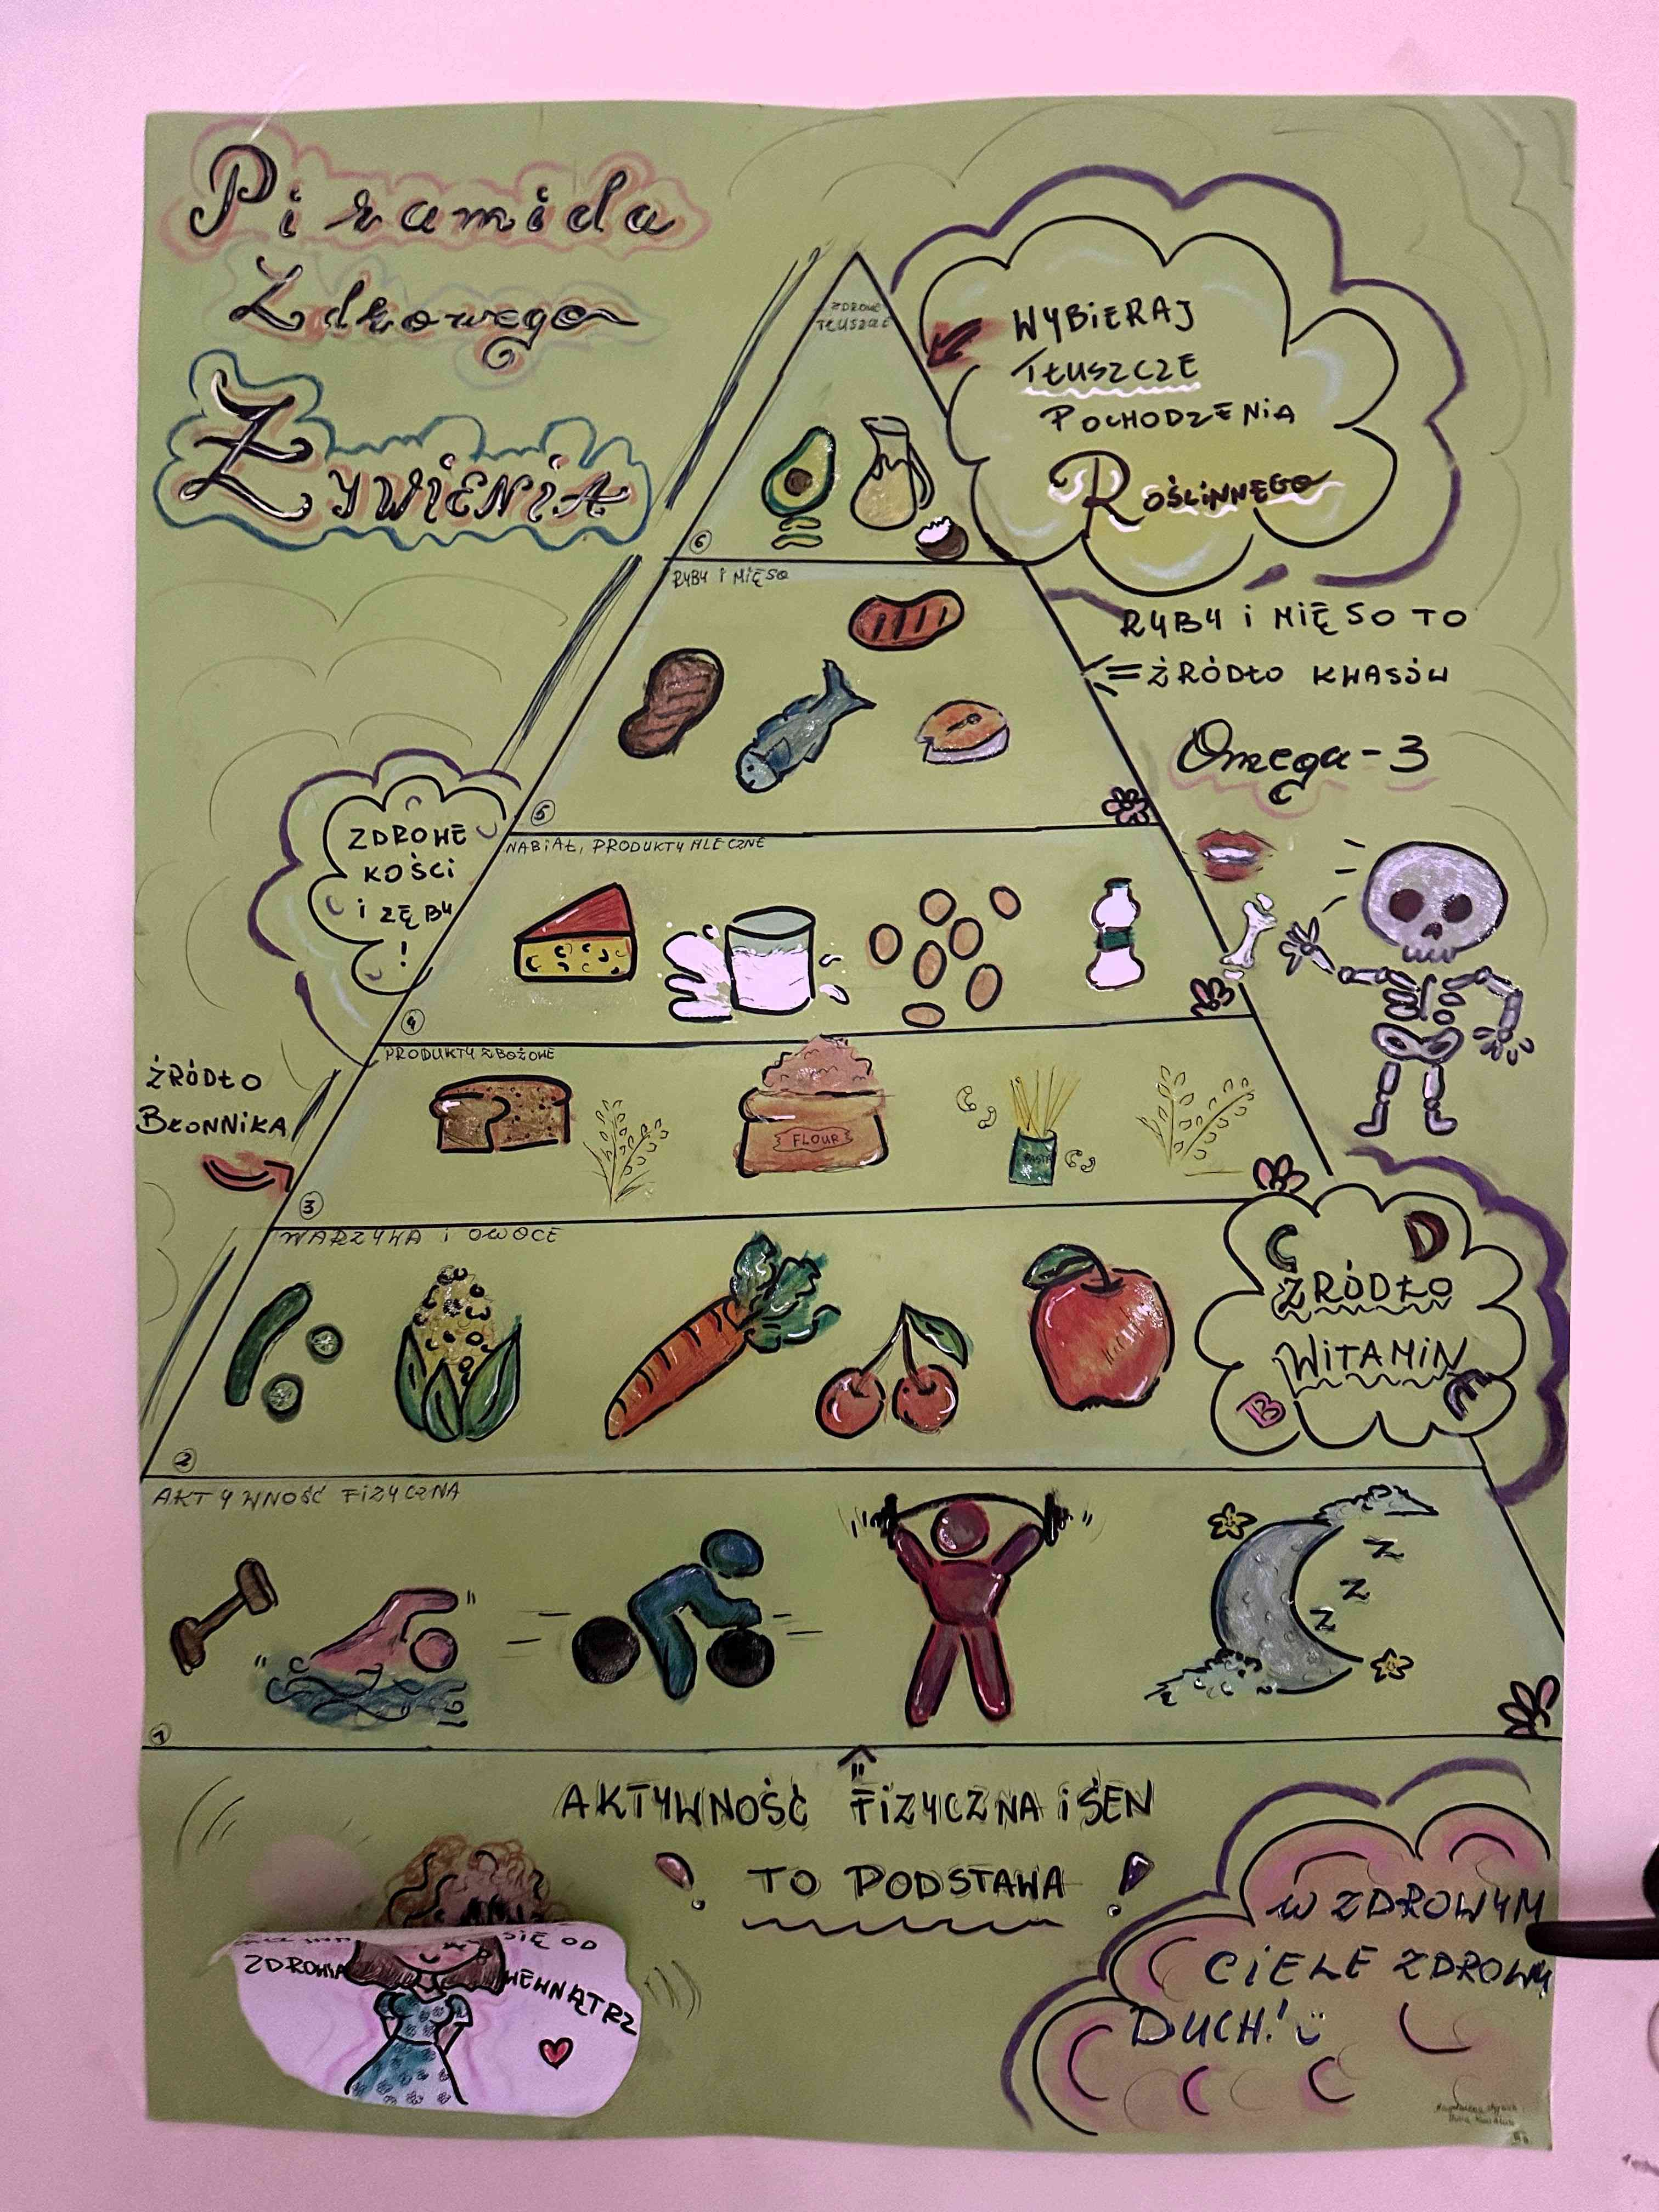 Piramida
Zdrowego
Żywienia
ZDROWE
TŁUSZCZE
WYBIERAJ
TŁUSZCZE
POCHODZENIA
ROŚLINNEGO
6
RYBY I MIĘSO
RYBY I MIĘSO TO
ŹRÓDŁO KWASÓW
Omega-3
5
NABIAŁ, PRODUKTY MLECZNE
ZDROWE
KOŚCI
I ZĘBY
!
4
PRODUKTY ZBOŻOWE
ŹRÓDŁO
BŁONNIKA
FLOUR
PASTA
3
WARZYWA I OWOCE
C D
ŹRÓDŁO
WITAMIN
B E
2
AKTYWNOŚĆ FIZYCZNA
Z
Z
Z
1
AKTYWNOŚĆ FIZYCZNA I SEN
! TO PODSTAWA !
SIĘ OD
WEWNĄTRZ
W ZDROWYM
CIELE ZDROWY
DUCH!